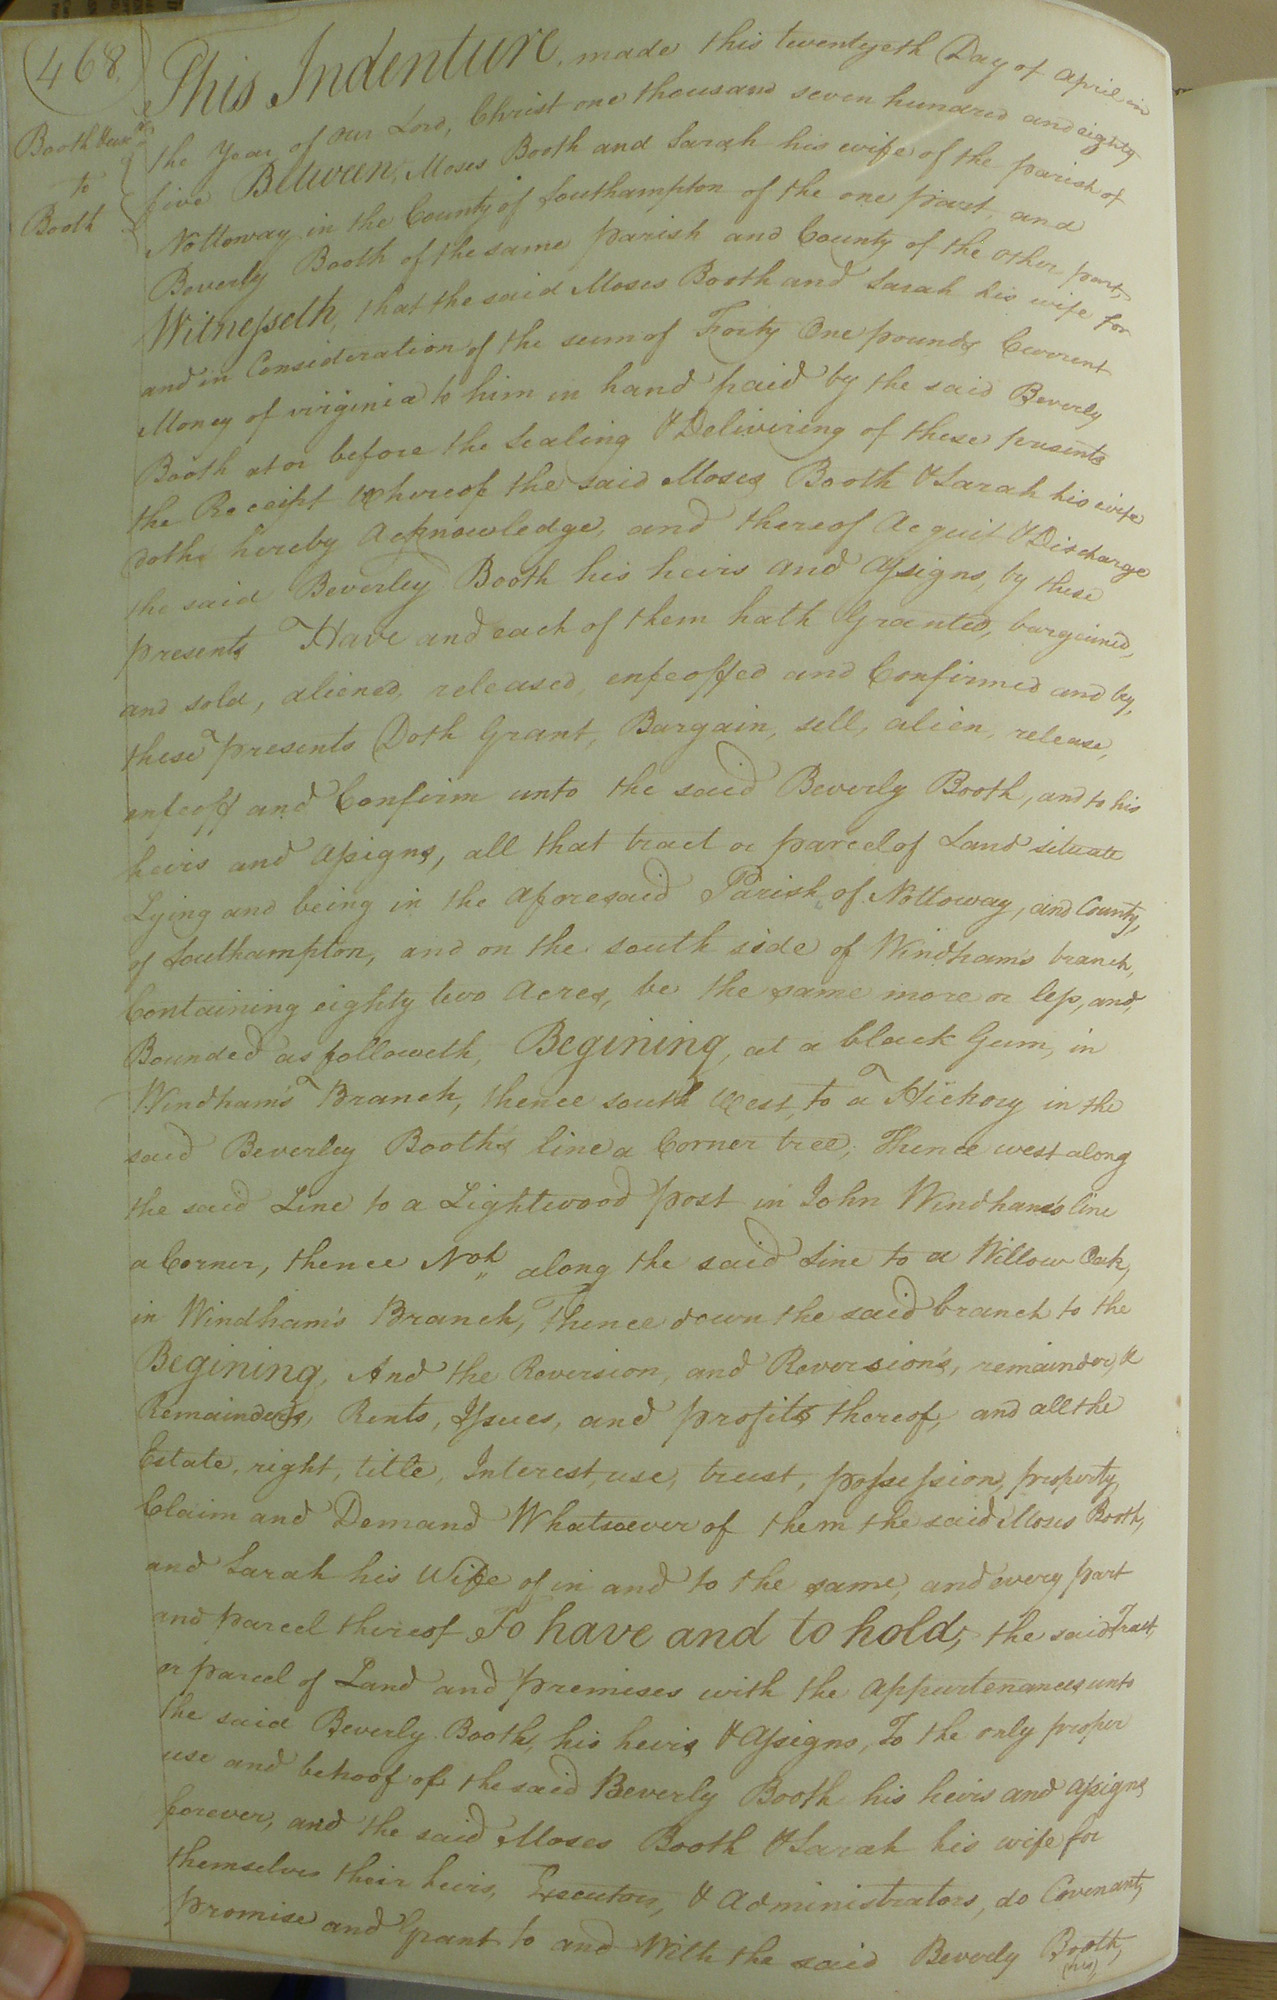 468.
Booth &ux.r
to
Booth
This Indenture, made this twentyeth Day of April in
the Year of our Lord, Christ one thousand seven hundred and eighty
five Between, Moses Booth and Sarah his wife of the parish of
Nottoway in the County of Southampton of the one part, and
Beverly Booth of the same parish and County of the other part,
Witnesseth, that the said Moses Booth and Sarah his wife for
and in Consideration of the sum of Forty One pounds Current
Money of virginia to him in hand paid by the said Beverly
Booth at or before the Sealing & Deliviring of these presents
the Receipt Whereof the said Moses Booth & Sarah his wife
doth hereby Acknowledge, and thereof Acquit & Discharge
the said Beverley Booth his heirs and Assigns, by these
presents Have and each of them hath Granted, bargained,
and sold, aliened, released, enfeoffed and Confirmed and by,
these presents Doth Grant, Bargain, sell, alien, release,
enfeoff and Confirm unto the said Beverly Booth, and to his
heirs and Assigns, all that tract or parcel of Land situate
Lying and being in the Aforesaid Parish of Nottoway, and County,
of Southampton, and on the south side of Windham's branch,
Containing eighty two Acres, be the same more or less, and,
Bounded as followeth, Begining, at a black Gum, in
Windham's Branch, thence south West, to a Hickory in the
said Beverley Booth's line a Corner tree; Thence west along
the said Line to a Lightwood post in John Windham's line
a Corner, thence Noh along the said Line to a Willow Oak,
in Windham's Branch, Thence down the said branch to the
Begining, And the Reversion, and Reversion's, remainder, &
Remainders, Rents, Issues, and profits thereof, and all the
Estate, right, title, Interest, use, trust, possession, property,
Claim and Demand Whatsoever of them the said Moses Booth,
and Sarah his Wife of in and to the same, and every part
and parcel thereof To have and to hold, the said Tract,
or parcel of Land and premises with the Appurtenances unto
the said Beverly Booth, his heirs & Assigns, To the only proper
use and behoof of the said Beverly Booth his heirs and Assigns
forever, and the said Moses Booth & Sarah his wife for
themselves their heirs, Executors, & Administrators, do Covenant,
promise and Grant to and With the said Beverly Booth,
(his)